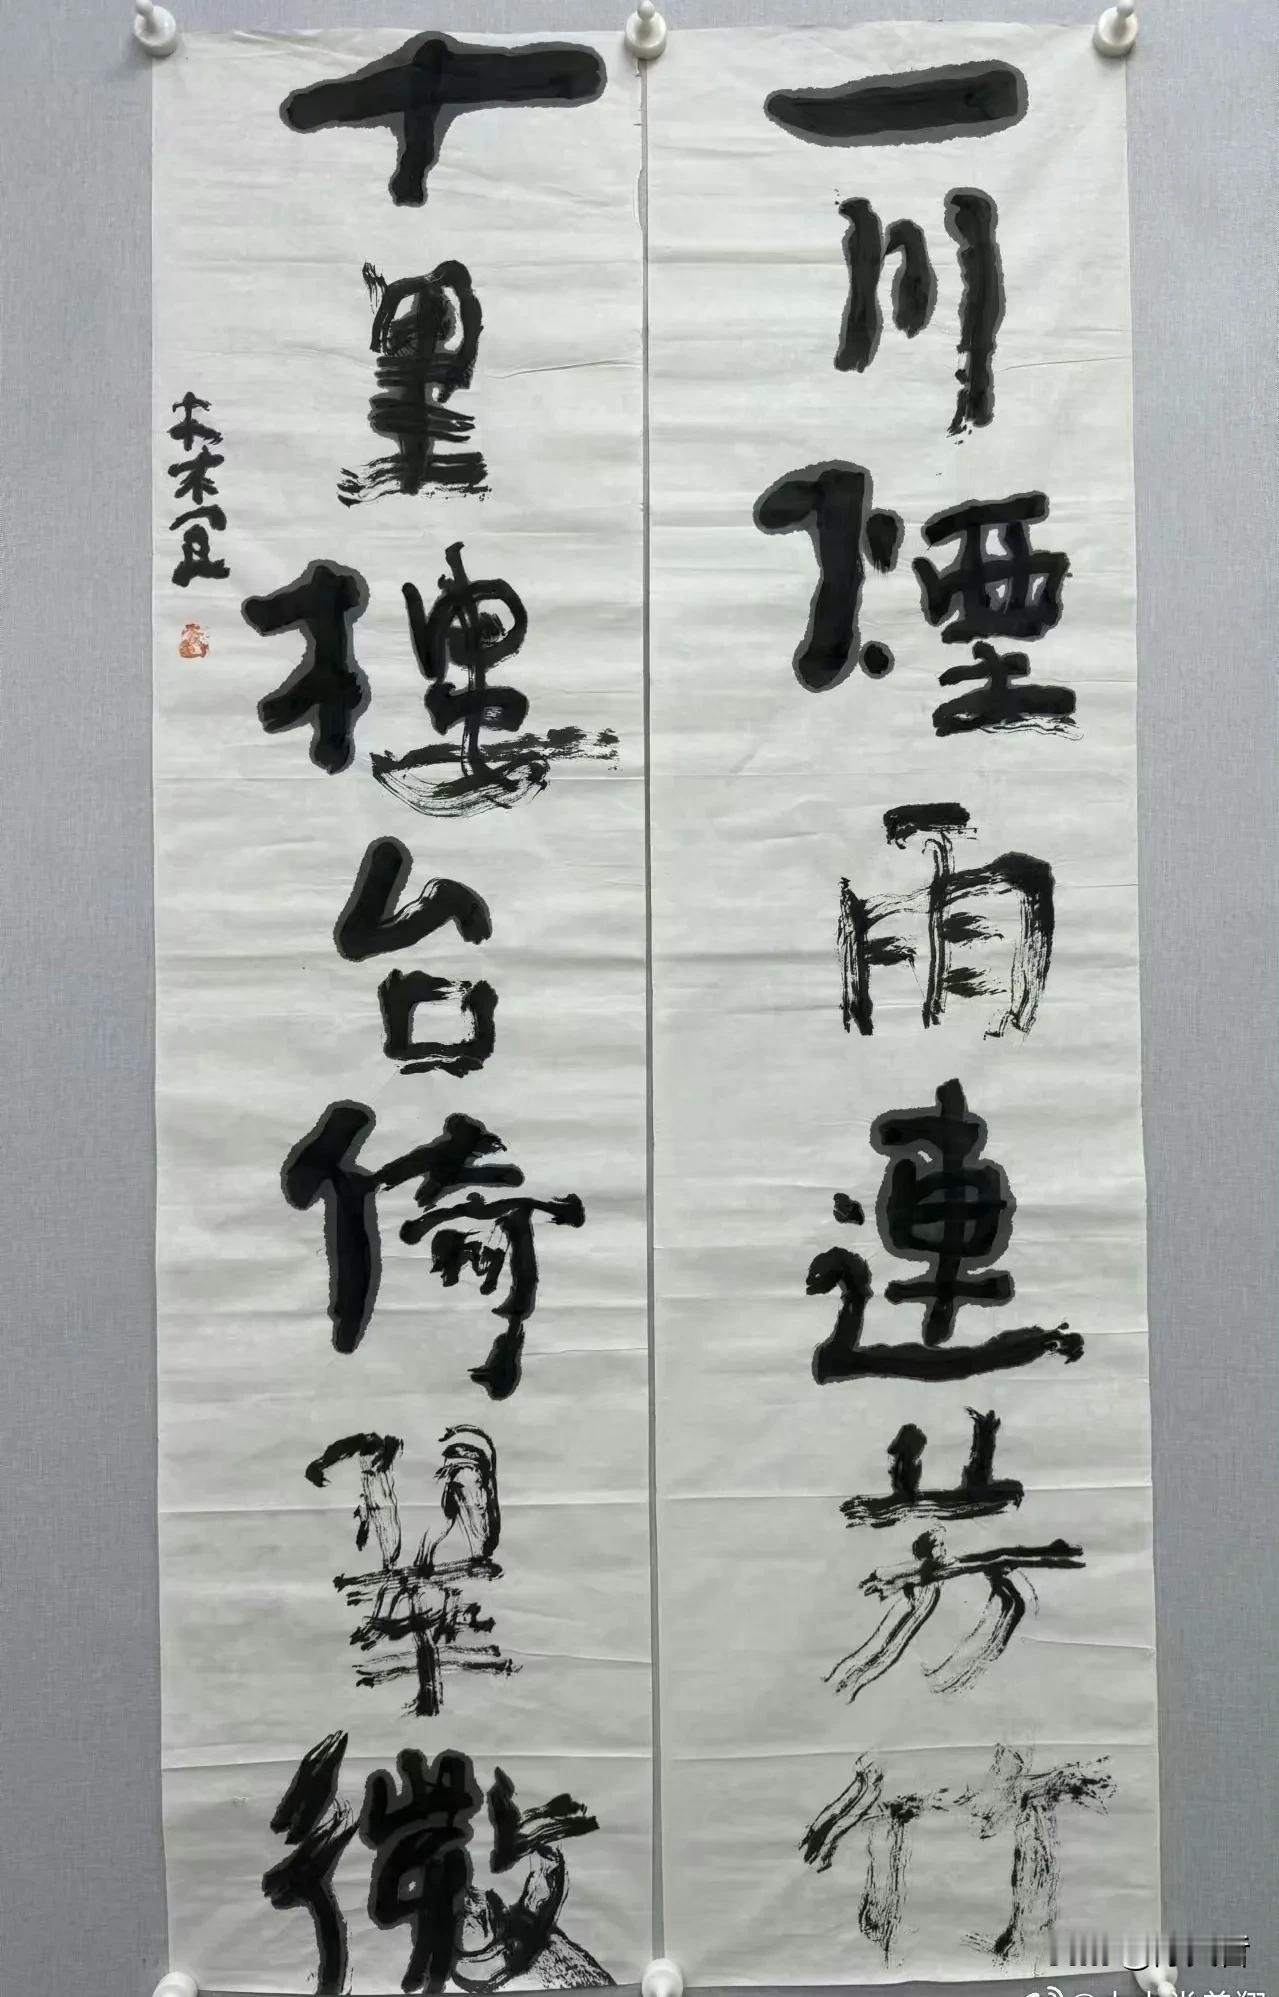 一川煙雨連芳竹
十里樓台倚翠微
木木宜